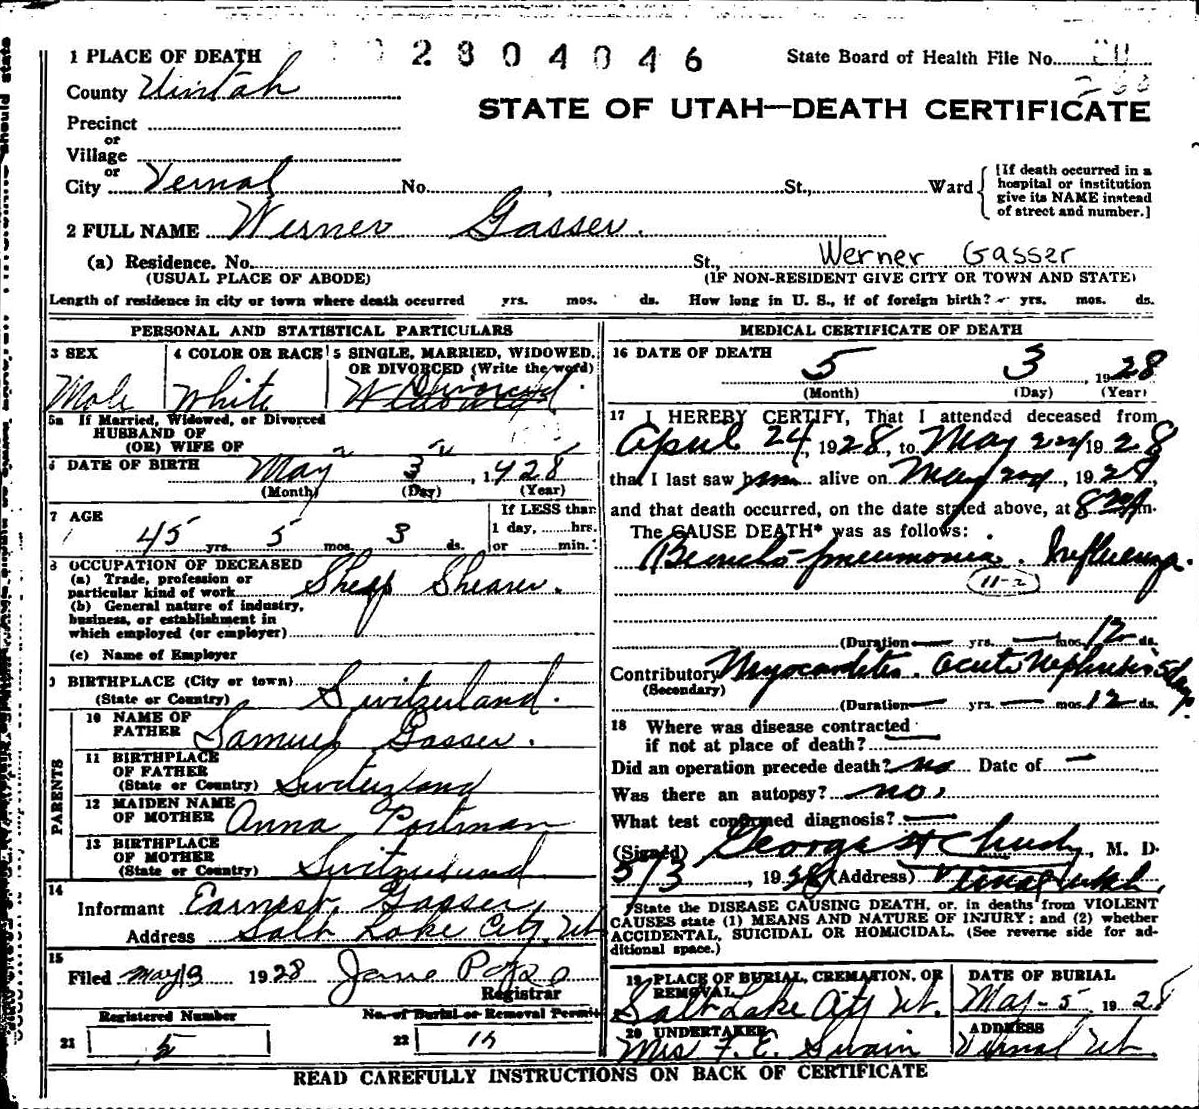 1 PLACE OF DEATH
2804046
State Board of Health File No.
County Uintah
STATE OF UTAH—DEATH CERTIFICATE
Precinct
or
Village
or
City Vernal No. , St., Ward
[If death occurred in a hospital or institution give its NAME instead of street and number.]
2 FULL NAME Werner Gasser.
(a) Residence. No. St., Werner Gasser
(USUAL PLACE OF ABODE) (IF NON-RESIDENT GIVE CITY OR TOWN AND STATE)
Length of residence in city or town where death occurred yrs. mos. ds. How long in U. S., if of foreign birth? yrs. mos. ds.
PERSONAL AND STATISTICAL PARTICULARS
3 SEX
Male
4 COLOR OR RACE
White
5 SINGLE, MARRIED, WIDOWED, OR DIVORCED (Write the word)
Divorced
5a If Married, Widowed, or Divorced
HUSBAND OF
(OR) WIFE OF
6 DATE OF BIRTH May 3, 1928
(Month) (Day) (Year)
7 AGE
45 yrs. 5 mos. 3 ds.
If LESS than
1 day, hrs.
or min.
8 OCCUPATION OF DECEASED
(a) Trade, profession or
particular kind of work Sheep Shearer.
(b) General nature of industry,
business, or establishment in
which employed (or employer)
(c) Name of Employer
9 BIRTHPLACE (City or town)
(State or Country) Switzerland.
PARENTS
10 NAME OF
FATHER Samuel Gasser.
11 BIRTHPLACE
OF FATHER
(State or Country) Switzerland
12 MAIDEN NAME
OF MOTHER Anna Portman
13 BIRTHPLACE
OF MOTHER
(State or Country) Switzerland
14
Informant Earnest Gasser,
Address Salt Lake City, Ut
15
Filed May 3 1928 Jane
Registrar
Registered Number
21 5
No. of Burial or Removal Permit
22
MEDICAL CERTIFICATE OF DEATH
16 DATE OF DEATH
5 3, 1928
(Month) (Day) (Year)
17 I HEREBY CERTIFY, That I attended deceased from
April 24, 1928, to May 2nd 1928
that I last saw him alive on May 2nd, 1928,
and that death occurred, on the date stated above, at 8 m.
The CAUSE DEATH* was as follows:
Broncho-pneumonia. Influenza.
11-2
(Duration — yrs. — mos. 12 ds.
Contributory Myocarditis. Acute Nephritis 5 days
(Secondary)
(Duration — yrs. — mos. 12 ds.
18 Where was disease contracted
if not at place of death? —
Did an operation precede death? no Date of —
Was there an autopsy? no.
What test confirmed diagnosis? —
(Signed) George H , M. D.
5/3, 1928 (Address) Vernal Utah,
*State the DISEASE CAUSING DEATH, or, in deaths from VIOLENT
CAUSES state (1) MEANS AND NATURE OF INJURY; and (2) whether
ACCIDENTAL, SUICIDAL OR HOMICIDAL. (See reverse side for ad-
ditional space.)
19 PLACE OF BURIAL, CREMATION, OR
REMOVAL
Salt Lake City Ut.
DATE OF BURIAL
May-5 1928
20 UNDERTAKER
Mrs F. E. Swain
ADDRESS
Vernal Ut.
READ CAREFULLY INSTRUCTIONS ON BACK OF CERTIFICATE